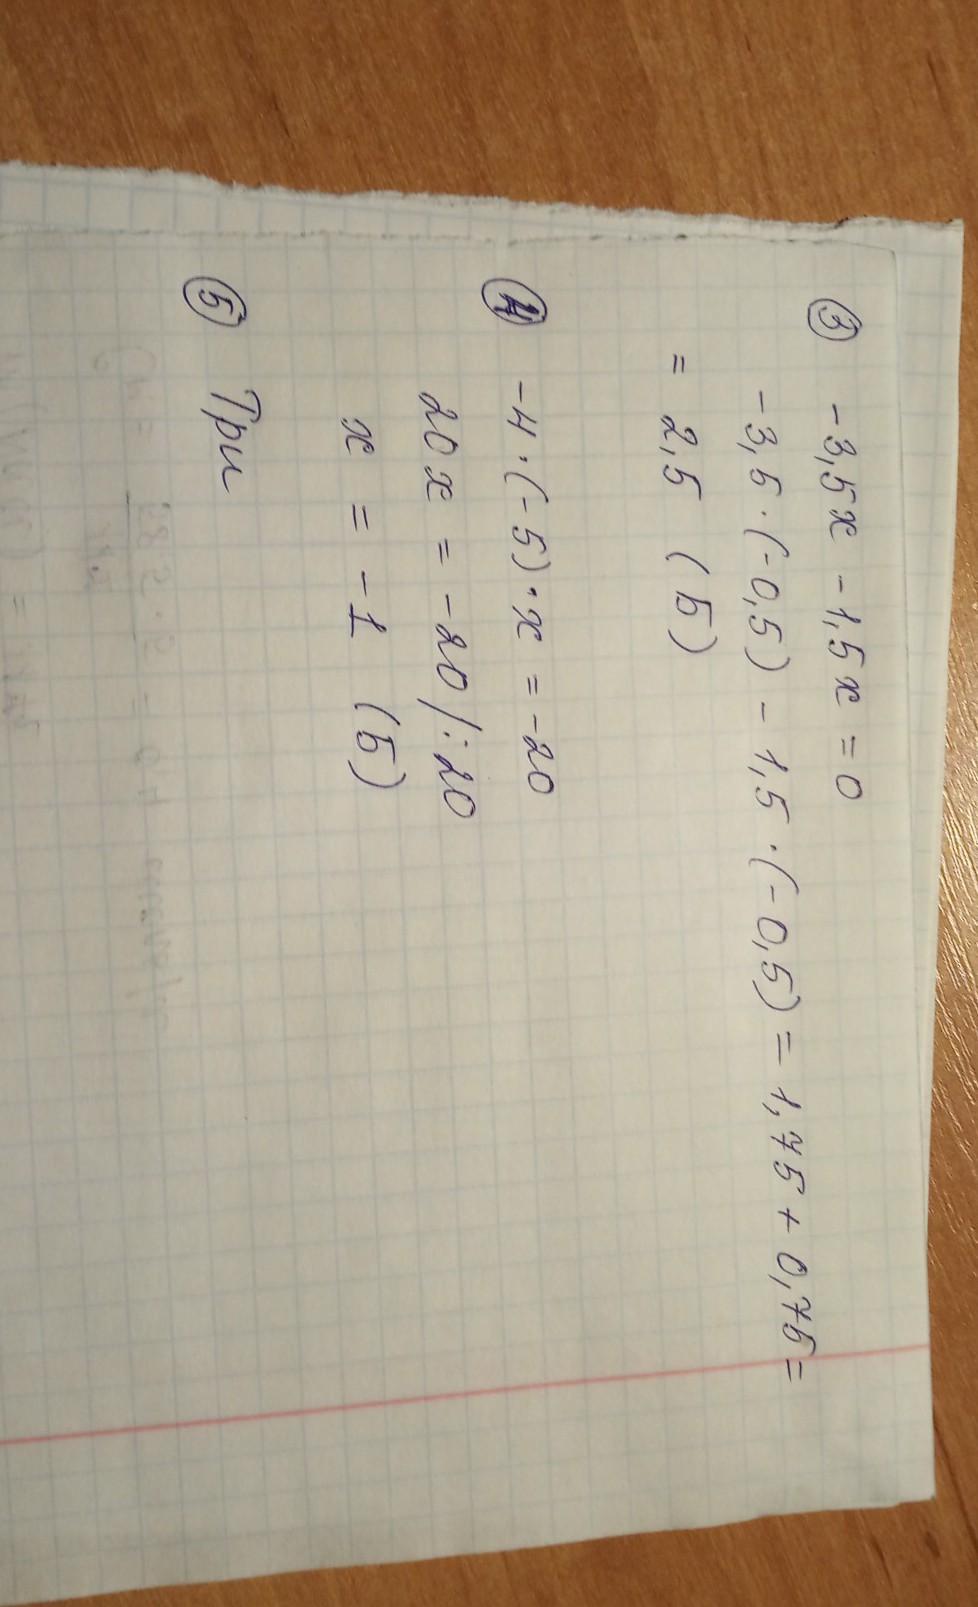 ③ -3,5x - 1,5x = 0
-3,5 · (-0,5) - 1,5 · (-0,5) = 1,75 + 0,75 =
= 2,5 (Б)
④ -4 · (-5) · x = -20
20x = -20 /:20
x = -1 (Б)
⑤ Три